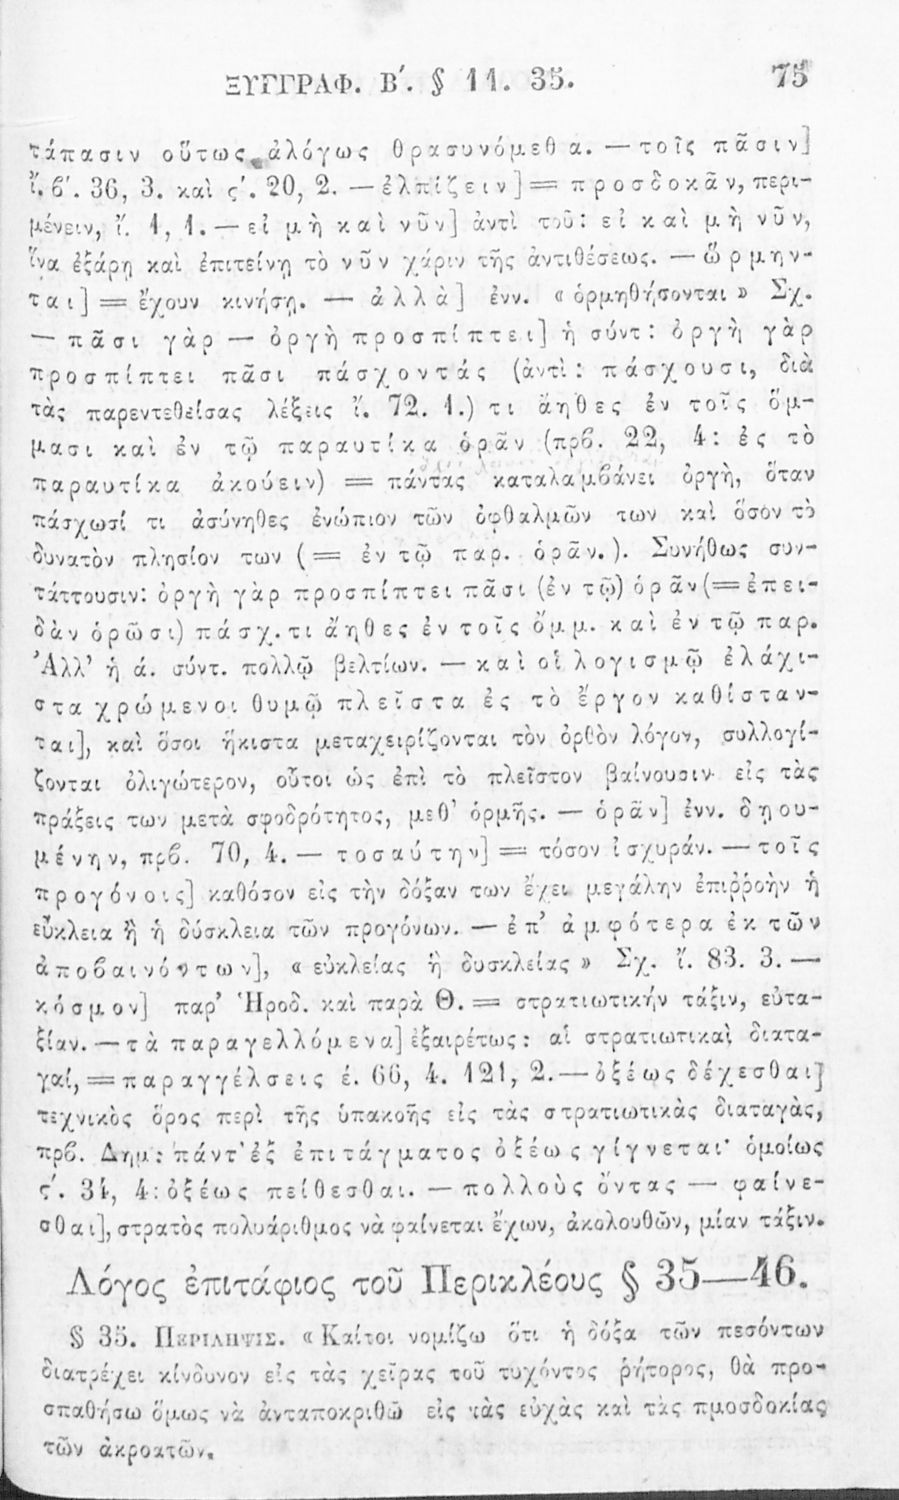 ΞΥΓΓΡΑΦ. Β΄. § 11. 35. 75
τάπασιν οὕτως ἀλόγως θρασυνόμεθα. — τοῖς πᾶσιν]
ἴ. β΄. 36, 3. καὶ ς΄. 20, 2. — ἐλπίζειν] = προσδοκᾶν, περι-
μένειν, ἴ. 1, 1. — εἰ μὴ καὶ νῦν] ἀντὶ τοῦ: εἰ καὶ μὴ νῦν,
ἵνα ἐξάρῃ καὶ ἐπιτείνῃ τὸ νῦν χάριν τῆς ἀντιθέσεως. — ὥρμην-
ται] = ἔχουν κινήσῃ. — ἀλλὰ] ἐνν. « ὁρμηθήσονται » Σχ.
— πᾶσι γὰρ — ὀργὴ προσπίπτει] ἡ σύντ: ὀργὴ γὰρ
προσπίπτει πᾶσι πάσχοντάς (ἀντὶ: πάσχουσι, διὰ
τὰς παρεντεθείσας λέξεις ἴ. 72. 1.) τι ἄηθες ἐν τοῖς ὄμ-
μασι καὶ ἐν τῷ παραυτίκα ὁρᾶν (πρβ. 22, 4: ἐς τὸ
παραυτίκα ἀκούειν) = πάντας καταλαμβάνει ὀργὴ, ὅταν
πάσχωσί τι ἀσύνηθες ἐνώπιον τῶν ὀφθαλμῶν των καὶ ὅσον τὸ
δυνατὸν πλησίον των ( = ἐν τῷ παρ. ὁρᾶν. ). Συνήθως συν-
τάττουσιν: ὀργὴ γὰρ προσπίπτει πᾶσι (ἐν τῷ) ὁρᾶν (= ἐπει-
δὰν ὁρῶσι) πάσχ. τι ἄηθες ἐν τοῖς ὄμμ. καὶ ἐν τῷ παρ.
Ἀλλ' ἡ ά. σύντ. πολλῷ βελτίων. — καὶ οἱ λογισμῷ ἐλάχι-
στα χρώμενοι θυμῷ πλεῖστα ἐς τὸ ἔργον καθίσταν-
ται], καὶ ὅσοι ἥκιστα μεταχειρίζονται τὸν ὀρθὸν λόγον, συλλογί-
ζονται ὀλιγώτερον, οὗτοι ὡς ἐπὶ τὸ πλεῖστον βαίνουσιν εἰς τὰς
πράξεις των μετὰ σφοδρότητος, μεθ' ὁρμῆς. — ὁρᾶν] ἐνν. δῃου-
μένην, πρβ. 70, 4. — τοσαύτην] = τόσον ἰσχυράν. — τοῖς
προγόνοις] καθόσον εἰς τὴν δόξαν των ἔχει μεγάλην ἐπιῤῥοὴν ἡ
εὔκλεια ἢ ἡ δύσκλεια τῶν προγόνων. — ἐπ' ἀμφότερα ἐκ τῶν
ἀποβαινόντων], « εὐκλείας ἢ δυσκλείας » Σχ. ἴ. 83. 3. —
κόσμον] παρ' Ἡροδ. καὶ παρὰ Θ. = στρατιωτικήν τάξιν, εὐτα-
ξίαν. — τὰ παραγελλόμενα] ἐξαιρέτως: αἱ στρατιωτικαὶ διατα-
γαί, = παραγγέλσεις έ. 66, 4. 121, 2. — ὀξέως δέχεσθαι]
τεχνικὸς ὅρος περὶ τῆς ὑπακοῆς εἰς τὰς στρατιωτικὰς διαταγὰς,
πρβ. Δημ: πάντ' ἐξ ἐπιτάγματος ὀξέως γίγνεται· ὁμοίως
ς΄. 34, 4: ὀξέως πείθεσθαι. — πολλοὺς ὄντας — φαίνε-
σθαι], στρατὸς πολυάριθμος νὰ φαίνεται ἔχων, ἀκολουθῶν, μίαν τάξιν.
Λόγος ἐπιτάφιος τοῦ Περικλέους § 35—46.
§ 35. ΠΕΡΙΛΗΨΙΣ. « Καίτοι νομίζω ὅτι ἡ δόξα τῶν πεσόντων
διατρέχει κίνδυνον εἰς τὰς χεῖρας τοῦ τυχόντος ῥήτορος, θὰ προ-
σπαθήσω ὅμως νὰ ἀνταποκριθῶ εἰς τὰς εὐχὰς καὶ τὰς πμοσδοκίας
τῶν ἀκροατῶν.